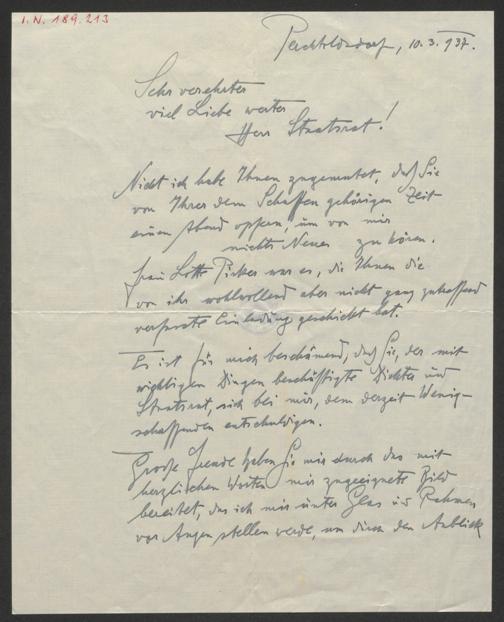 I.N. 189.213
Perchtoldsdorf, 10.3.937.
Sehr verehrter
viel Liebe werter
Herr Staatsrat!
Nicht ich habe Ihnen zugemutet, daß Sie
von Ihrer dem Schaffen gehörigen Zeit
einen Abend opfern, um von mir
nichts Neues zu hören.
Frau Lotte Picker war es, die Ihnen die
von ihr wohlwollend aber nicht ganz zutreffend
verfasste Einladung geschickt hat.
Es ist für mich beschämend, daß Sie, der mit
wichtigen Dingen beschäftigte Dichter und
Staatsrat, sich bei mir, dem derzeit Wenig-
schaffenden entschuldigen.
Große Freude haben Sie mir durch das mit
herzlichen Worten mir zugeeignete Bild
bereitet, das ich mir unter Glas und Rahmen
vor Augen stellen werde, um durch den Anblick